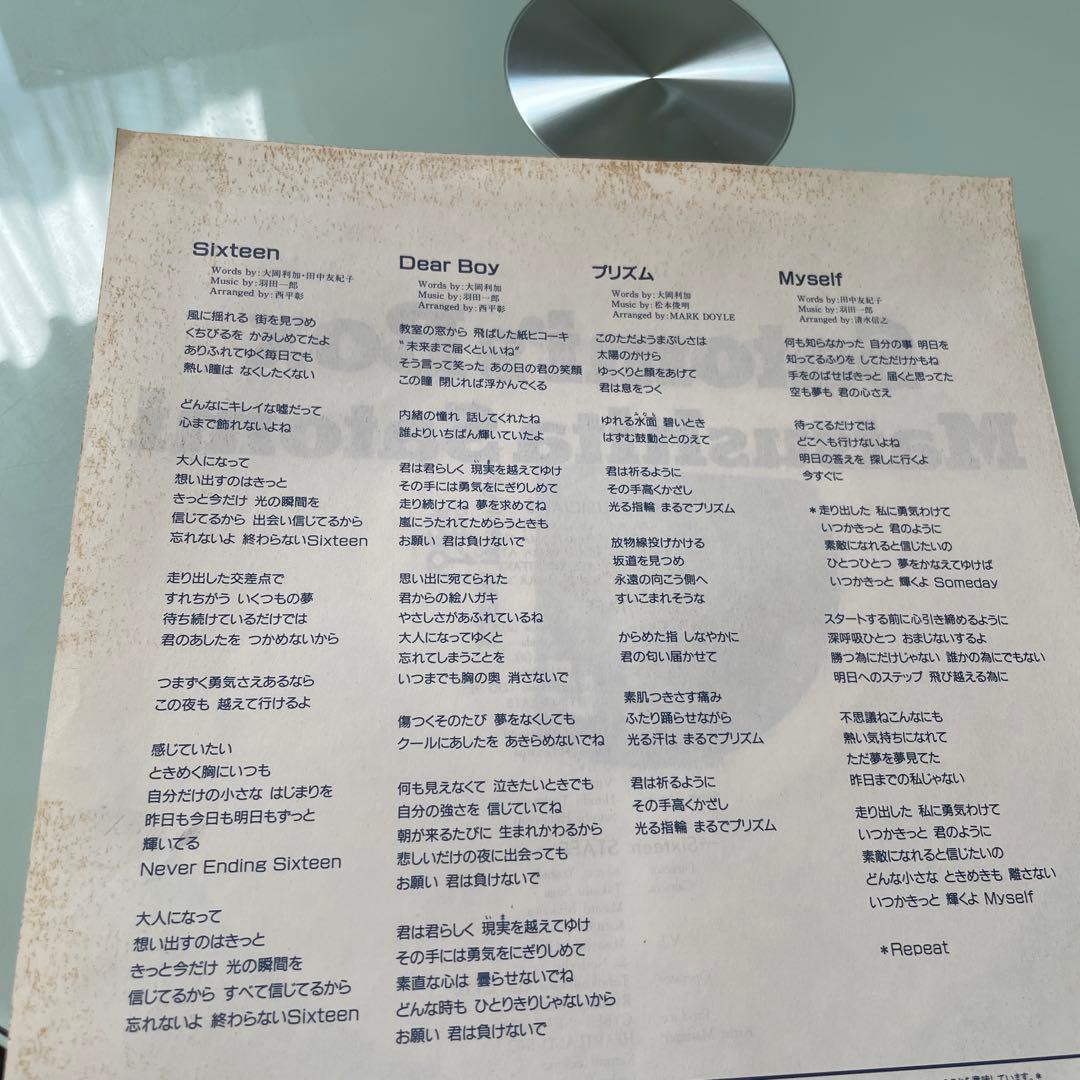 Sixteen
Words by:大岡利加・田中友紀子
Music by:羽田一郎
Arranged by:西平彰
風に揺れる 街を見つめ
くちびるを かみしめてたよ
ありふれてゆく毎日でも
熱い瞳は なくしたくない
どんなにキレイな嘘だって
心まで飾れないよね
大人になって
想い出すのはきっと
きっと今だけ 光の瞬間を
信じてるから 出会い信じてるから
忘れないよ 終わらないSixteen
走り出した交差点で
すれちがう いくつもの夢
待ち続けているだけでは
君のあしたを つかめないから
つまずく勇気さえあるなら
この夜も 越えて行けるよ
感じていたい
ときめく胸にいつも
自分だけの小さな はじまりを
昨日も今日も明日もずっと
輝いてる
Never Ending Sixteen
大人になって
想い出すのはきっと
きっと今だけ 光の瞬間を
信じてるから すべて信じてるから
忘れないよ 終わらないSixteen
Dear Boy
Words by:大岡利加
Music by:羽田一郎
Arranged by:西平彰
教室の窓から 飛ばした紙ヒコーキ
“未来まで届くといいね”
そう言って笑った あの日の君の笑顔
この瞳 閉じれば浮かんでくる
内緒の憧れ 話してくれたね
誰よりいちばん輝いていたよ
君は君らしく 現実を越えてゆけ
その手には勇気をにぎりしめて
走り続けてね 夢を求めてね
嵐にうたれてためらうときも
お願い 君は負けないで
思い出に宛てられた
君からの絵ハガキ
やさしさがあふれているね
大人になってゆくと
忘れてしまうことを
いつまでも胸の奥 消さないで
傷つくそのたび 夢をなくしても
クールにあしたを あきらめないでね
何も見えなくて 泣きたいときでも
自分の強さを 信じていてね
朝が来るたびに 生まれかわるから
悲しいだけの夜に出会っても
お願い 君は負けないで
君は君らしく 現実を越えてゆけ
その手には勇気をにぎりしめて
素直な心は 曇らせないでね
どんな時も ひとりきりじゃないから
お願い 君は負けないで
プリズム
Words by:大岡利加
Music by:松本俊明
Arranged by:MARK DOYLE
このただようまぶしさは
太陽のかけら
ゆっくりと顔をあげて
君は息をつく
ゆれる水面 碧いとき
はずむ鼓動ととのえて
君は祈るように
その手高くかざし
光る指輪 まるでプリズム
放物線投げかける
坂道を見つめ
永遠の向こう側へ
すいこまれそうな
からめた指 しなやかに
君の匂い届かせて
素肌つきさす痛み
ふたり踊らせながら
光る汗は まるでプリズム
君は祈るように
その手高くかざし
光る指輪 まるでプリズム
Myself
Words by:田中友紀子
Music by:羽田一郎
Arranged by:清水信之
何も知らなかった 自分の事 明日を
知ってるふりを してただけかもね
手をのばせばきっと 届くと思ってた
空も夢も 君の心さえ
待ってるだけでは
どこへも行けないよね
明日の答えを 探しに行くよ
今すぐに
*走り出した 私に勇気わけて
いつかきっと 君のように
素敵になれると信じたいの
ひとつひとつ 夢をかなえてゆけば
いつかきっと 輝くよ Someday
スタートする前に心引き締めるように
深呼吸ひとつ おまじないするよ
勝つ為にだけじゃない 誰かの為にでもない
明日へのステップ 飛び越える為に
不思議ねこんなにも
熱い気持ちになれて
ただ夢を夢見てた
昨日までの私じゃない
走り出した 私に勇気わけて
いつかきっと 君のように
素敵になれると信じたいの
どんな小さな ときめきも 離さない
いつかきっと 輝くよ Myself
*Repeat